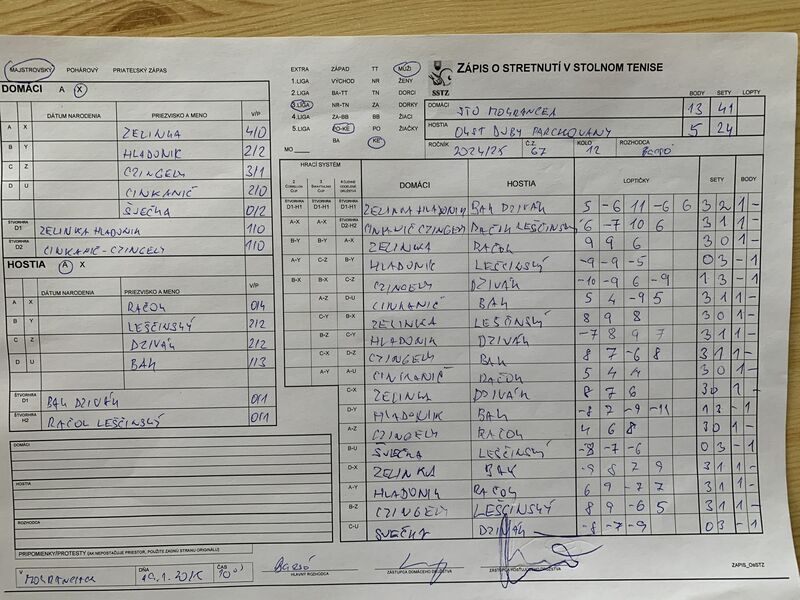 MAJSTROVSKÝ POHÁROVÝ PRIATEĽSKÝ ZÁPAS
DOMÁCI A X
DÁTUM NARODENIA PRIEZVISKO A MENO V/P
A X ZELINKA 4/0
B Y HLADONIK 2/2
C Z CZINGELY 3/1
D U CINKANIČ 2/0
ŠVEČKA 0/2
ŠTVORHRA D1 ZELINKA HLADONIK 1/0
ŠTVORHRA D2 CINKANIČ-CZINGELY 1/0
HOSTIA A X
DÁTUM NARODENIA PRIEZVISKO A MENO V/P
A X RAČOK 0/4
B Y LEŠČINSKÝ 2/2
C Z DZIVÁK 2/2
D U BAK 1/3
ŠTVORHRA D1 BAK DZIVÁK 0/1
ŠTVORHRA H2 RAČOK LEŠČINSKÝ 0/1
DOMÁCI
HOSTIA
ROZHODCA
PRIPOMIENKY/PROTESTY (AK NEPOSTAČUJE PRIESTOR, POUŽITE ZADNÚ STRANU ORIGINÁLU)
EXTRA ZÁPAD TT MUŽI
1.LIGA VÝCHOD NR ŽENY
2.LIGA BA-TT TN DORCI
3.LIGA NR-TN ZA DORKY
4.LIGA ZA-BB BB ŽIACI
5.LIGA PO-KE PO ŽIAČKY
BA KE
MO
SSTZ
ZÁPIS O STRETNUTÍ V STOLNOM TENISE
BODY SETY LOPTY
DOMÁCI STO MOKRANCE 13 41
HOSTIA OŠST DUBY PARCHOVANY 5 24
ROČNÍK 2024/25 Č.Z. 67 KOLO 12 ROZHODCA
HRACÍ SYSTÉM DOMÁCI HOSTIA LOPTIČKY SETY BODY
ŠTVORHRA D1-H1 ŠTVORHRA D1-H1 ŠTVORHRA D1-H1 ZELINKA HLADONIK BAK DZIVÁK 5 -6 11 -6 6 3 2 1 -
A-X A-X ŠTVORHRA D2-H2 CINKANIČ CZINGELY RAČOK LEŠČINSKÝ 6 -7 10 6 3 1 1 -
B-Y B-Y A-X ZELINKA RAČOK 9 9 6 3 0 1 -
A-Y C-Z B-Y HLADONIK LEŠČINSKÝ -9 -9 -5 0 3 - 1
B-X B-X C-Z CZINGELY DZIVÁK -10 -9 6 -9 1 3 - 1
A-Z D-U CINKANIČ BAK 5 4 -9 5 3 1 1 -
C-Y B-X ZELINKA LEŠČINSKÝ 8 9 8 3 0 1 -
B-Z C-Y HLADONIK DZIVÁK -7 8 9 7 3 1 1 -
C-X D-Z CZINGELY BAK 8 7 -6 8 3 1 1 -
A-Y A-U CINKANIČ RAČOK 5 4 4 3 0 1 -
C-X ZELINKA DZIVÁK 8 7 6 3 0 1 -
D-Y HLADONIK BAK -8 2 -9 -11 1 3 - 1
A-Z CZINGELY RAČOK 4 6 8 3 0 1 -
B-U ŠVEČKA LEŠČINSKÝ -8 -7 -6 0 3 - 1
D-X ZELINKA BAK -9 8 7 9 3 1 1 -
A-Y HLADONIK RAČOK 6 9 -7 7 3 1 1 -
B-Z CZINGELY LEŠČINSKÝ 8 9 -6 5 3 1 1 -
C-U ŠVEČKA DZIVÁK -8 -7 -9 0 3 - 1
V MOKRANCIACH DŇA ČAS
HLAVNÝ ROZHODCA ZÁSTUPCA DOMÁCEHO DRUŽSTVA ZÁSTUPCA HOSŤUJÚCEHO DRUŽSTVA ZAPIS_OsSTZ